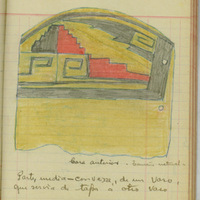 Cara anterior - Tamaño natural -
Parte media-convexa, de un Vaso,
que servia de tapa a otro Vaso